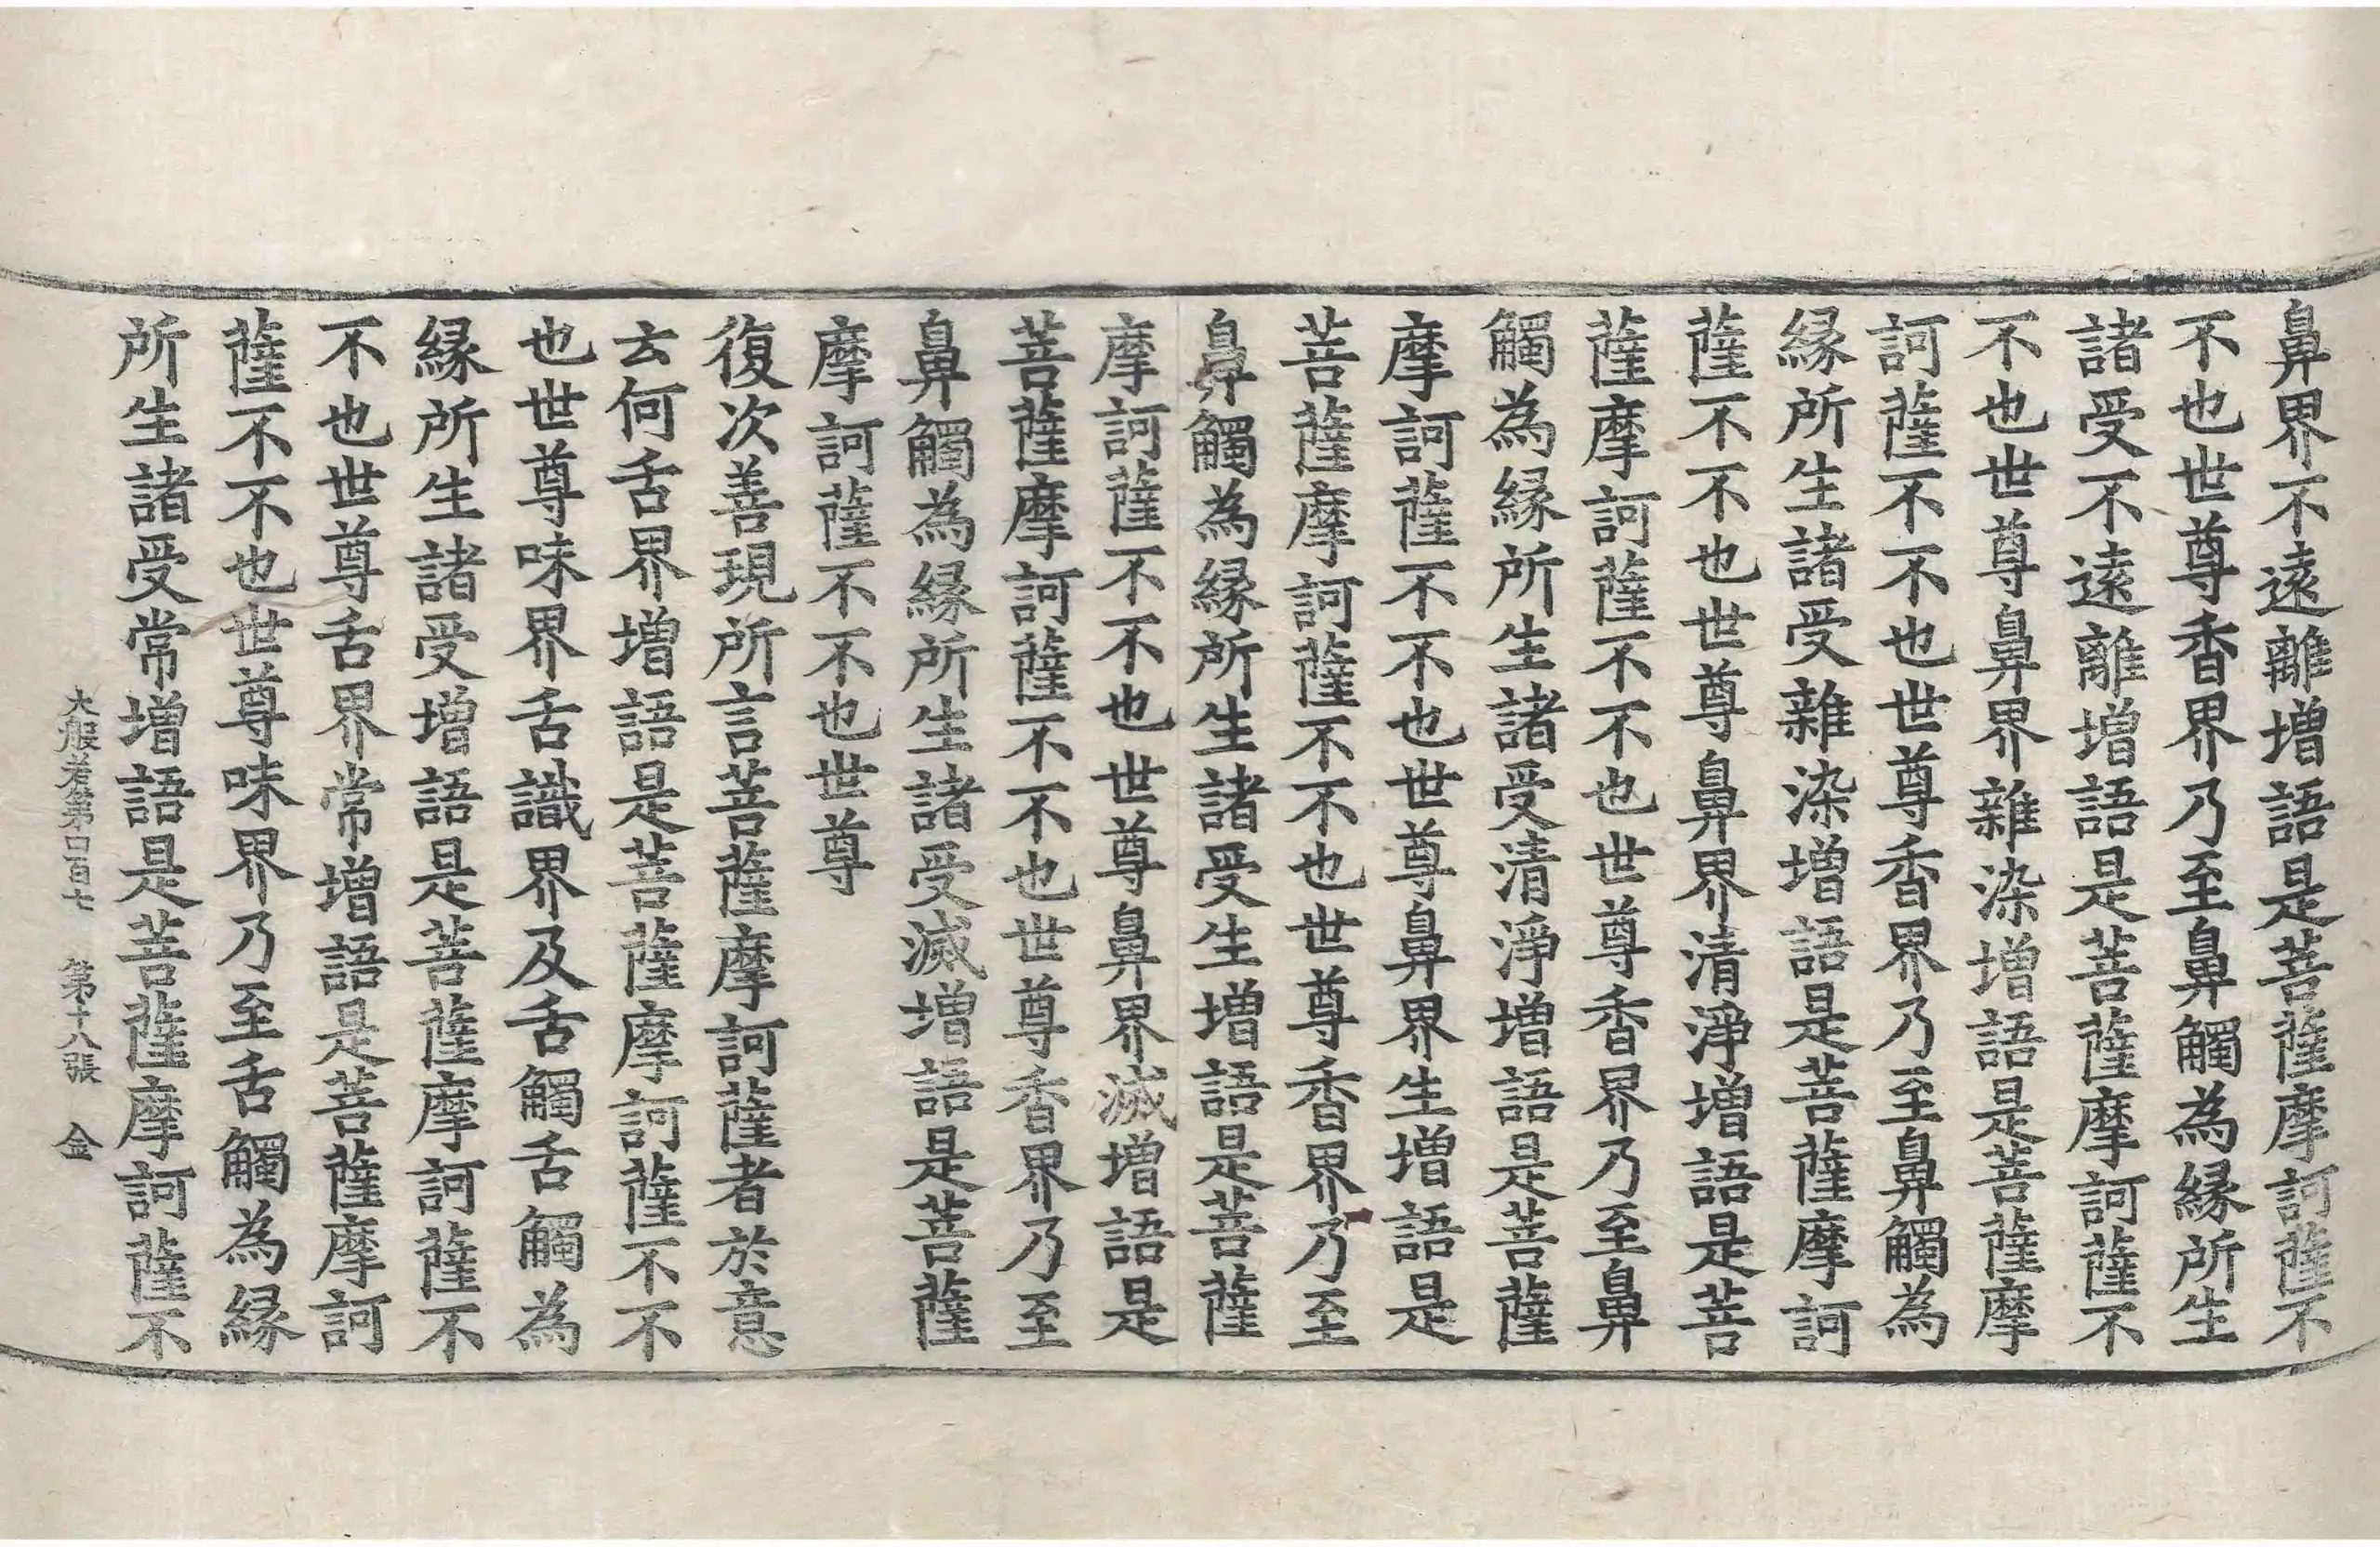 鼻界不遠離增語是菩薩摩訶薩不
不也世尊香界乃至鼻觸為緣所生
諸受不遠離增語是菩薩摩訶薩不
不也世尊鼻界雜染增語是菩薩摩
訶薩不不也世尊香界乃至鼻觸為
緣所生諸受雜染增語是菩薩摩訶
薩不不也世尊鼻界清淨增語是菩
薩摩訶薩不不也世尊香界乃至鼻
觸為緣所生諸受清淨增語是菩薩
摩訶薩不不也世尊鼻界生增語是
菩薩摩訶薩不不也世尊香界乃至
鼻觸為緣所生諸受生增語是菩薩
摩訶薩不不也世尊鼻界滅增語是
菩薩摩訶薩不不也世尊香界乃至
鼻觸為緣所生諸受滅增語是菩薩
摩訶薩不不也世尊
復次善現所言菩薩摩訶薩者於意
云何舌界增語是菩薩摩訶薩不不
也世尊味界舌識界及舌觸舌觸為
緣所生諸受增語是菩薩摩訶薩不
不也世尊舌界常增語是菩薩摩訶
薩不不也世尊味界乃至舌觸為緣
所生諸受常增語是菩薩摩訶薩不
大般若第百七 第十八張 金